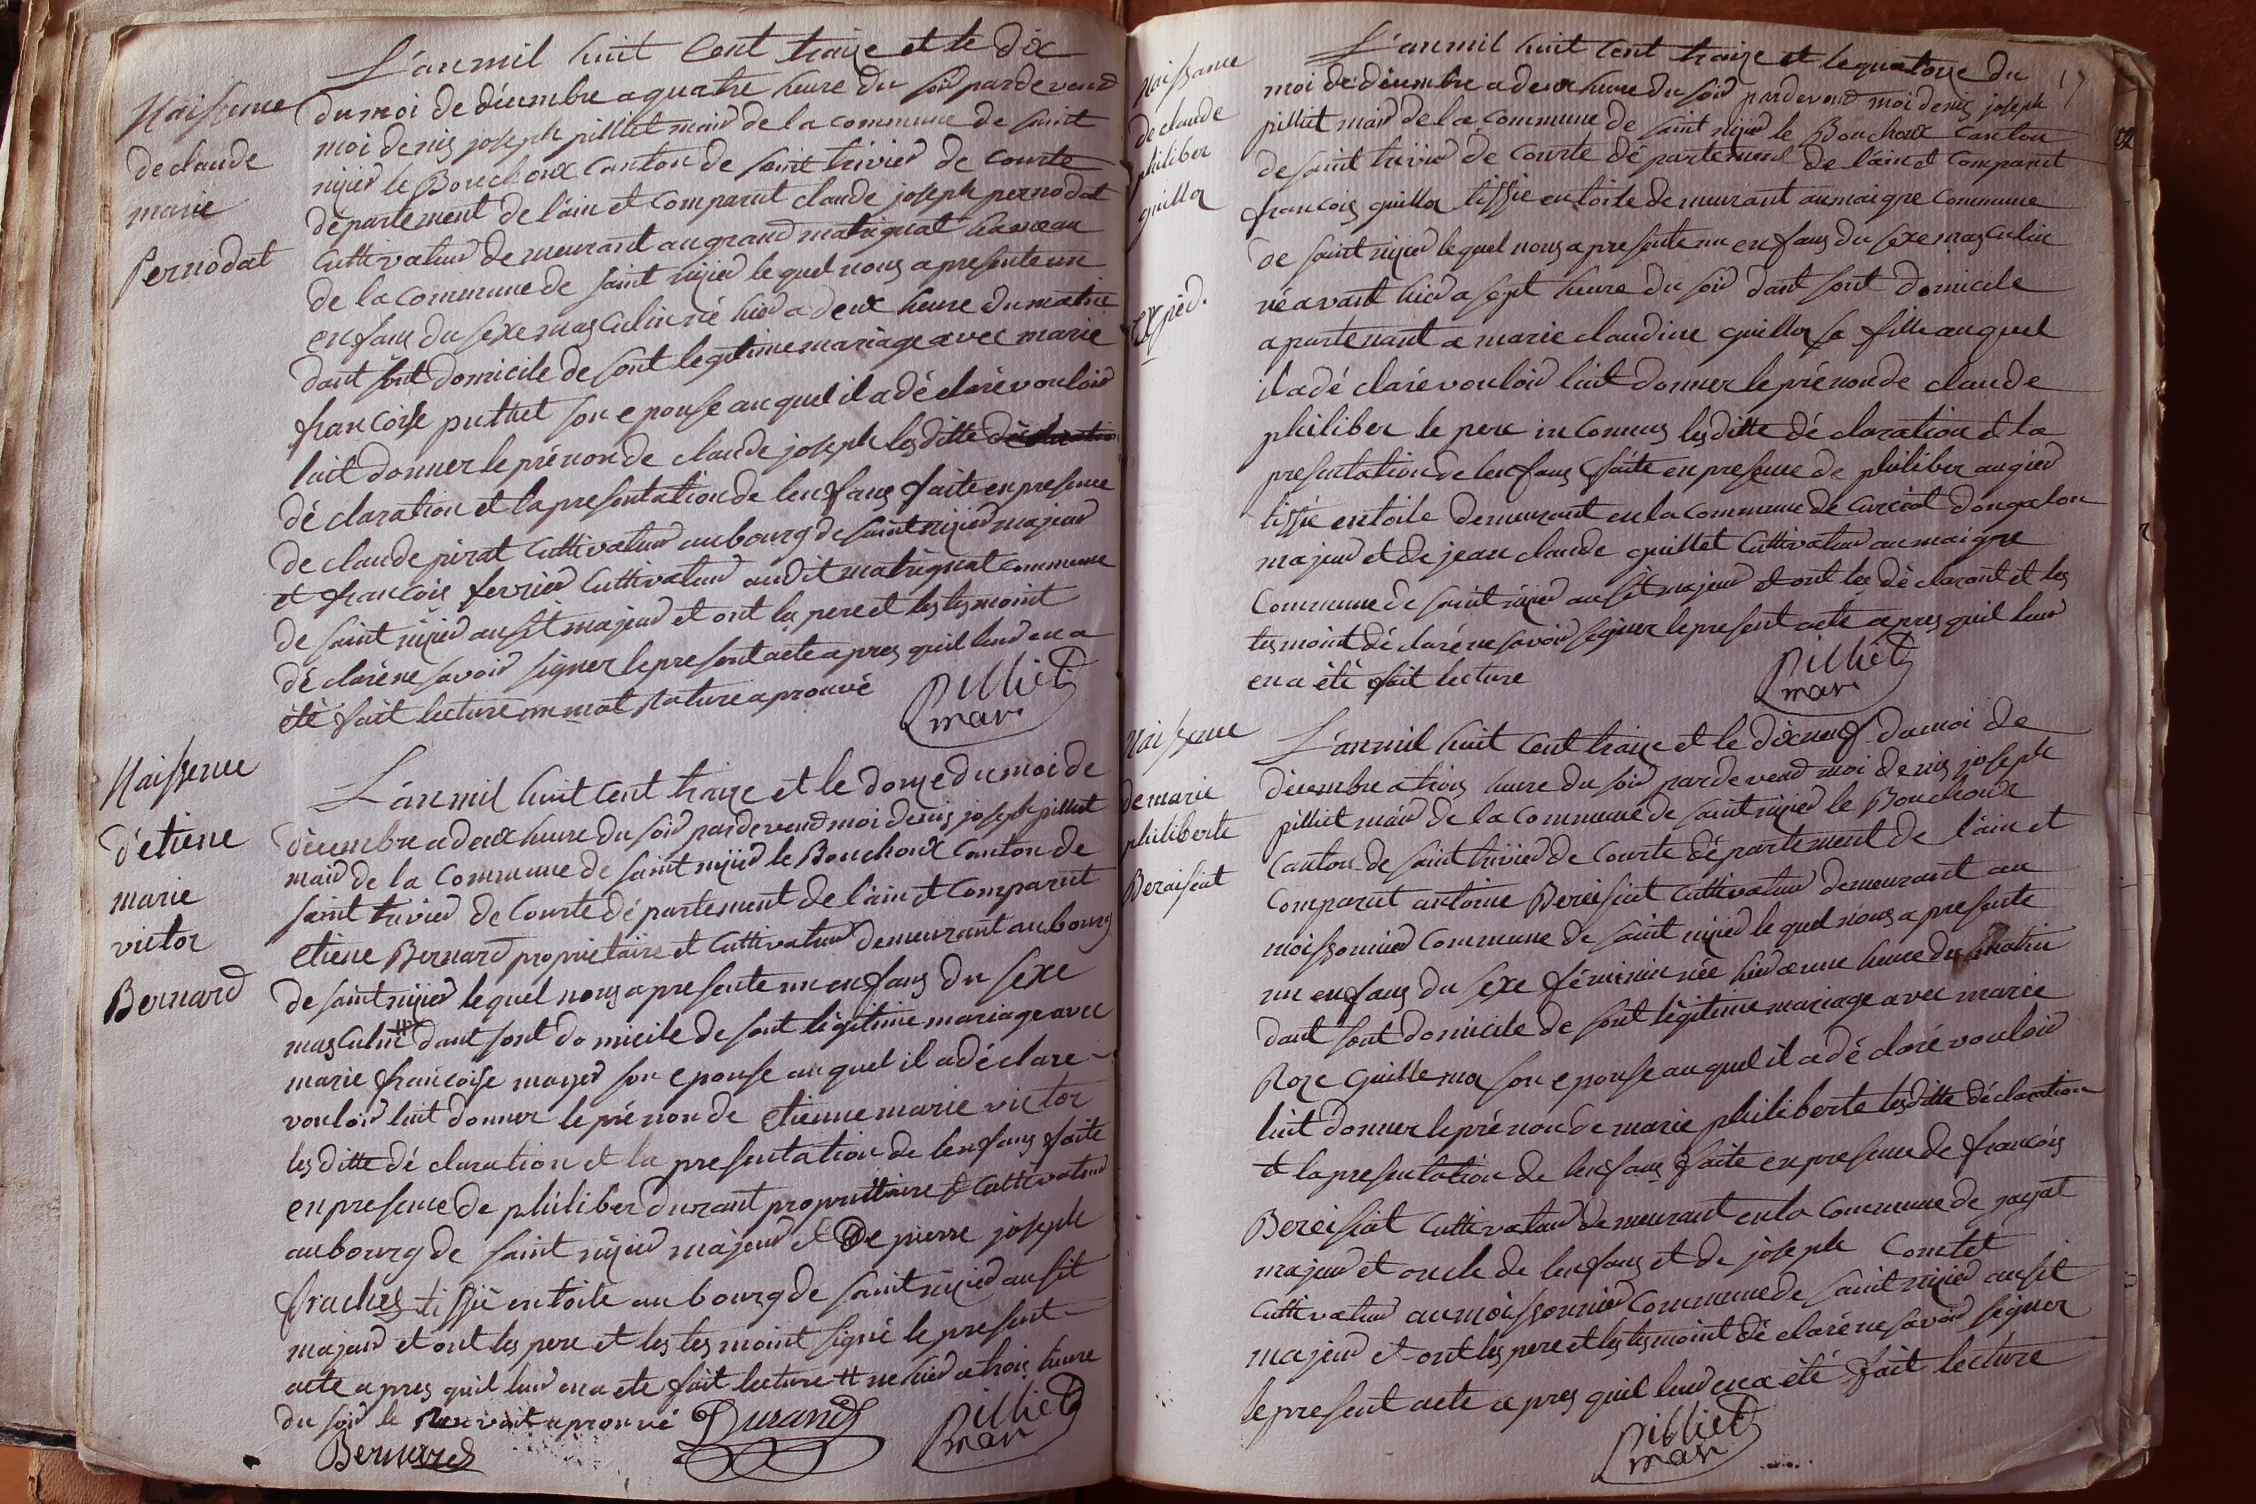 Naissence
de claude
marie
Pernodat
L'an mil huit Cent traize et le dix
du moi de décembre a quatre heure du soir par devend
moi denis joseph pilliet mair de la commune de saint
nizier le Bouchoux canton de saint trivier de courte
département de l'ain et comparut claude joseph pernodat
Cultivateur demeurant au grand matrignat hameau
de la commune de saint nizier le quel nous a presente un
enfans du sexe masculin né hier a deux heure du matin
dant sont domicile de sont legitime mariage avec marie
francoise puthet son epouse au quel il a dé claré vouloir
luit donner le prénon de claude joseph les ditte
dé claration et la presentation de lenfans faite en presence
de claude pirat Cultivateur au bourg de saint nizier majeur
et francois fevrier Cultivateur audit matrignat commune
de saint nizier ausit majeur et ont les pere et les tesmoint
dé claré ne savoir signer le present acte apres quil leur en a
été fait lecture un mot rature aprouvé
Pilliet
mair
Naissence
d'etiene
marie
victor
Bernard
L'an mil huit cent traize et le douze du moi de
décembre a deux heure du soir par devend moi denis joseph pilliet
mair de la Commune de saint nizier le Bouchoux Canton de
saint trivier de Courte département de l'ain et Comparut
etiene Bernard propriétaire et Cultivateur demeurant au bourg
de saint nizier le quel nous a presente un enfans du sexe
masculin # dant sont domicile de sont légitime mariage avec
marie francoise mayer son epouse au quel il a dé clare
vouloir luit donner le pré non de etienne marie victor
les ditte dé claration et la presentation de lenfans faite
en presence de philiber durant propriétaire & Cultivateur
au bourg de saint nizier majeur et de pierre joseph
fraches tissié en toile au bourg de saint nizier ausit
majeur et ont les pere et les tes moint signé le present
acte apres quil leur en a ete fait lecture # ne hier a trois heure
du soir le renvoit aprouvé
Bernard
Durand
Pilliet
mair
17
Naissance
de claude
philiber
guillon
Exped.
L'an mil huit cent traize et le quatorze du
moi de décembre a deux heure du soir par devend moi denis joseph
pilliet mair de la Commune de saint nizier le Bouchoux Canton
de saint trivier de Courte département de l'ain et Comparut
francois guillon tissie en toile demeurant au maigre Commune
de saint nizier le quel nous a presente un enfans du sexe masculin
né avant hier a sept heure du soir dant sont domicile
apartenant a marie claudine guillon sa fille au quel
il a dé claré vouloir luit donner le prénon de claude
philiber le pere inconnus les ditte dé claration et la
presentation de lenfans faite en presence de philiber augier
tissie en toile demeurant en la commune de curciat dongalon
majeur et de jean claude guillet Cultivateur au maigre
Commune de saint nizier ausit majeur et ont les dé clarant et les
tesmoint dé claré ne savoir signer le present acte apres quil leur
en a été fait lecture
Pilliet
mair
Naissence
de marie
philiberte
Bereisiat
L'an mil huit cent traize et le dixneuf du moi de
décembre a trois heure du soir par devend moi denis joseph
pilliet mair de la Commune de saint nizier le Bouchoux
Canton de saint trivier de Courte département de l'ain et
Comparut antoine Bereisiat Cultivateur demeurant au
moissonnier Commune de saint nizier le quel nous a presente
un enfans du sexe féminin née hier a une heure du matin
dant sont domicile de sont légitime mariage avec marie
Roze Guillemon son epouse au quel il a dé claré vouloir
luit donner le prénon de marie philiberte les ditte déclaration
et la presentation de lenfans faite en presence de francois
Bereisiat Cultivateur demeurant en la Commune de jayat
majeur et oncle de lenfans et de joseph Comtet
Cultivateur au moissonnier Commune de saint nizier ausit
majeur et ont les pere et les tesmoint dé claré ne savoir signer
le present acte apres quil leur en a été fait lecture
Pilliet
mair